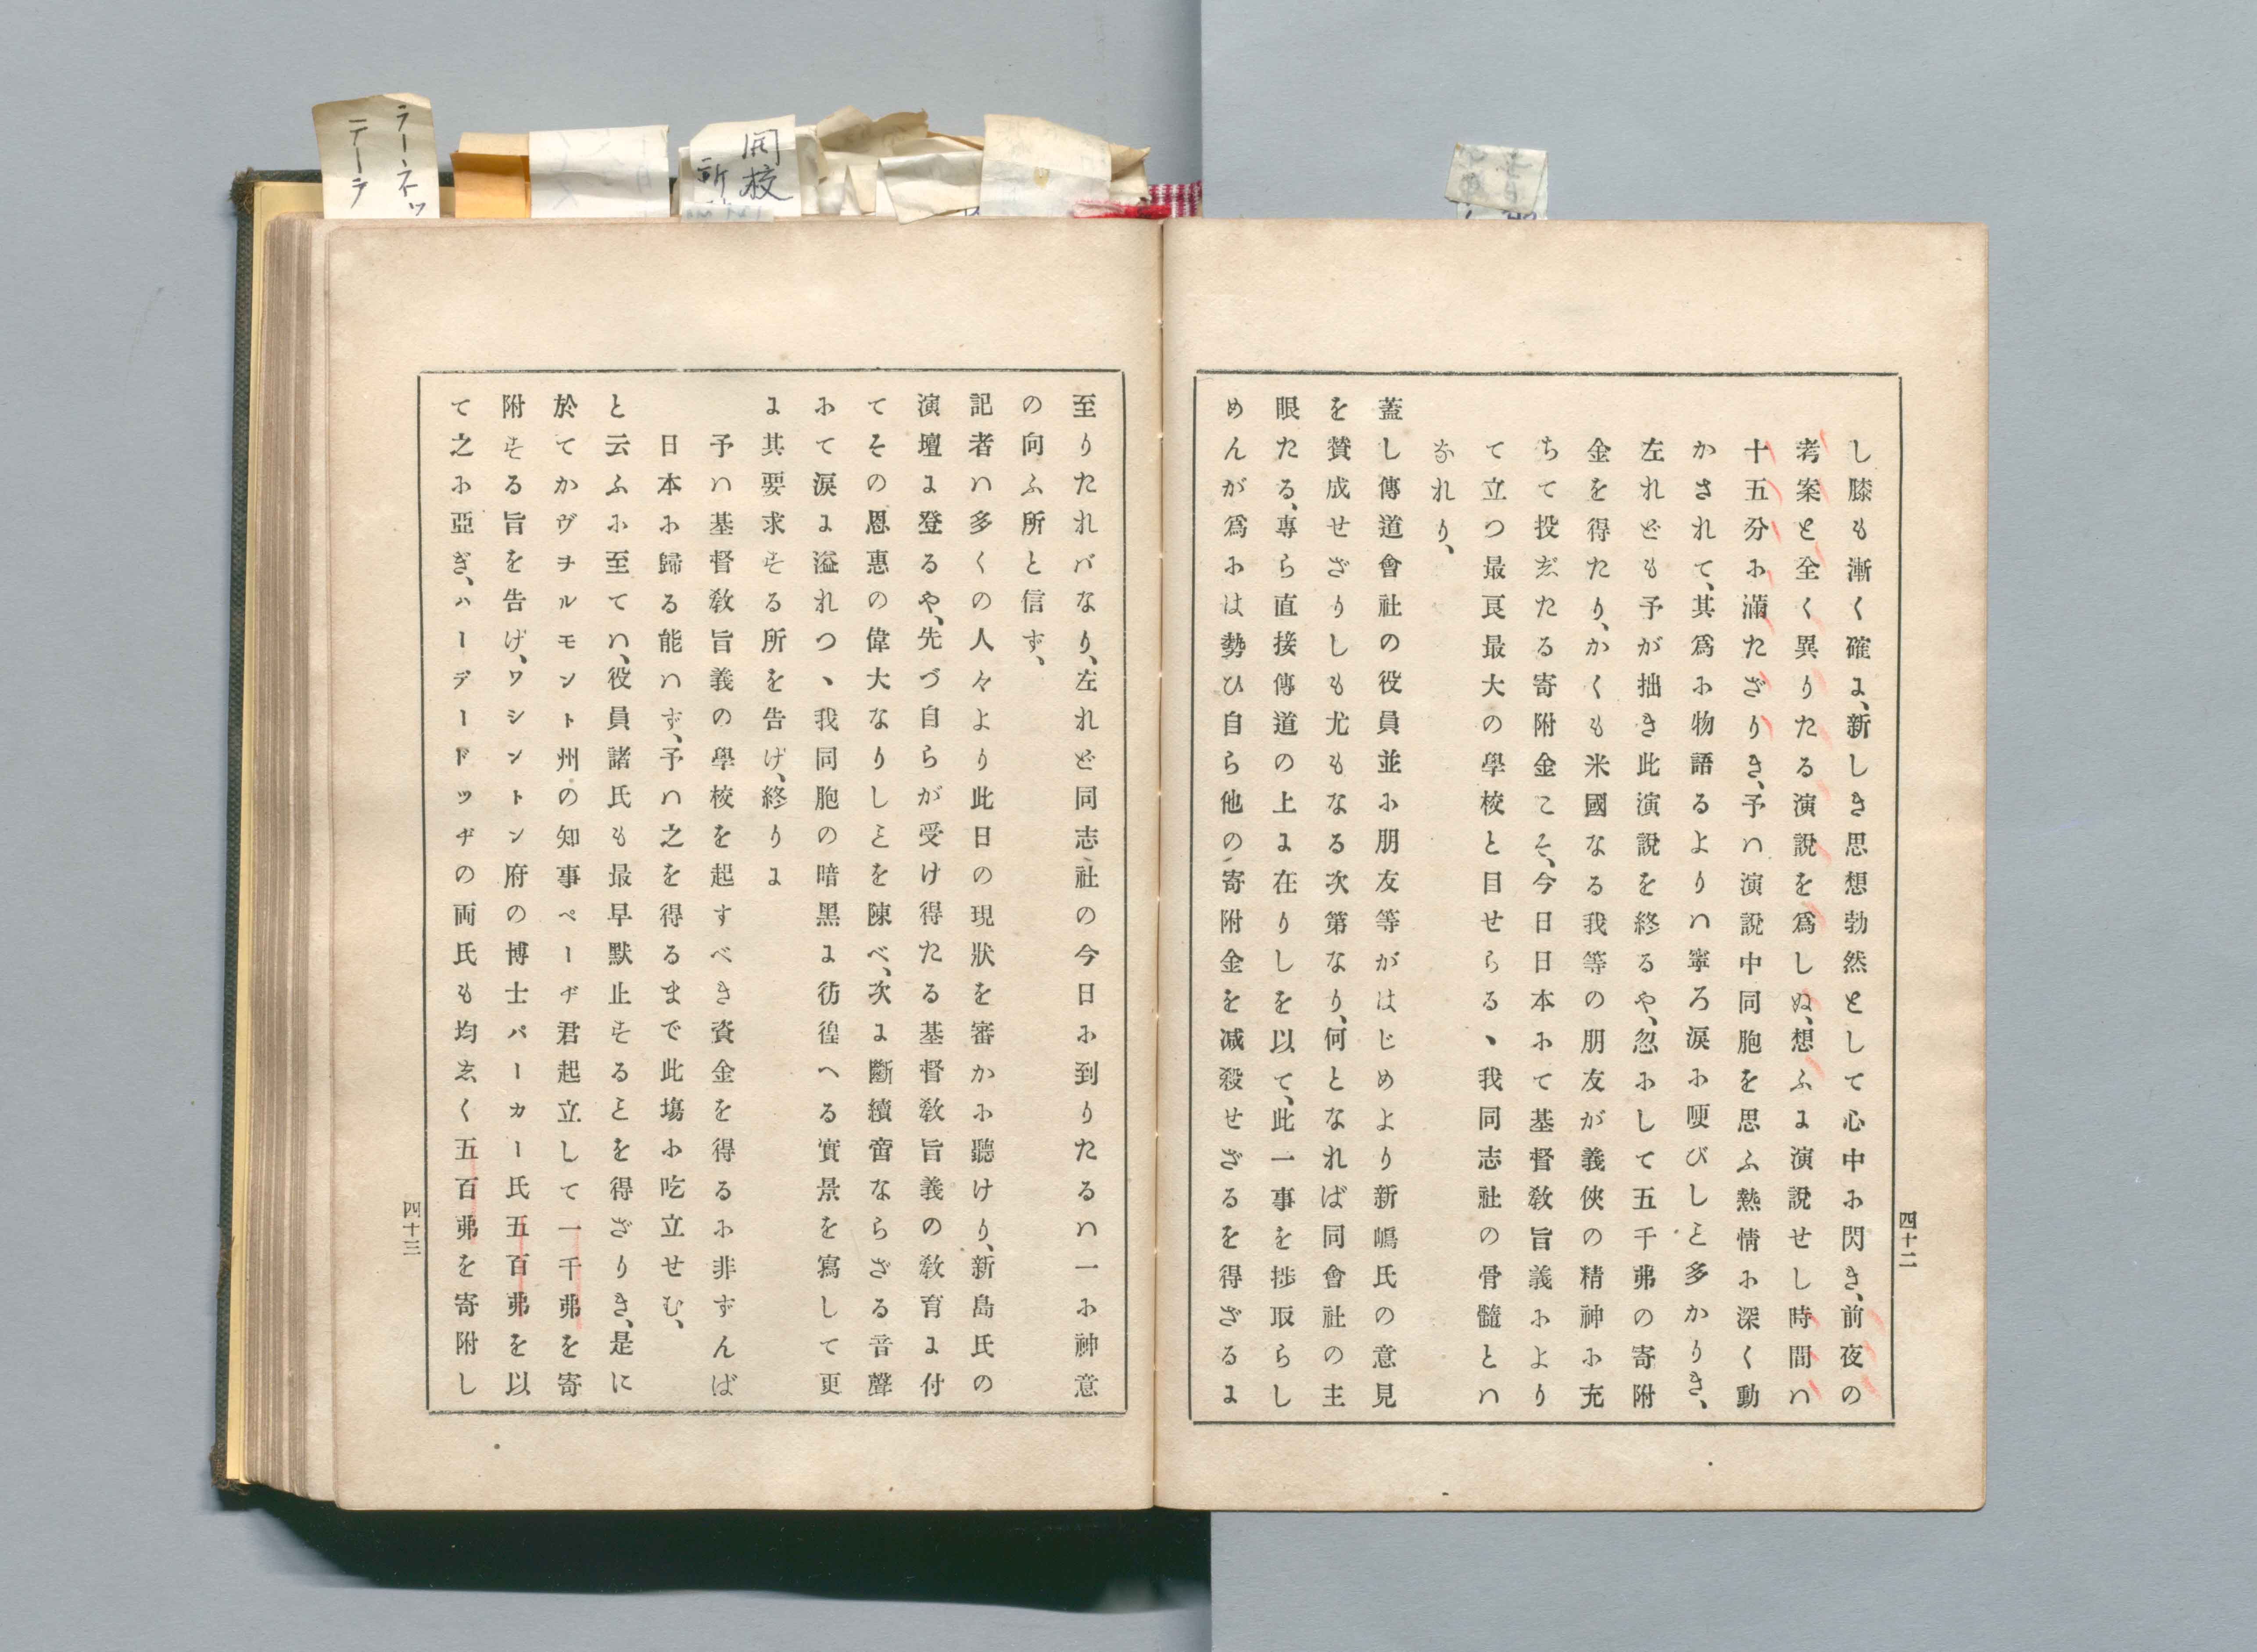 し膝も漸く確に、新しき思想勃然として心中に閃き、前夜の
考案と全く異りたる演説を爲しぬ、想ふに演説せし時間ハ
十五分に滿たざりき、予ハ演説中同胞を思ふ熱情に深く動
かされて、其爲に物語るよりハ寧ろ涙に哽びしヿ多かりき、
左れども予が拙き此演説を終るや、忽にして五千弗の寄附
金を得たり、かくも米國なる我等の朋友が義俠の精神に充
ちて投じたる寄附金こそ、今日日本にて基督敎旨義により
て立つ最良最大の學校と目せらるヽ我同志社の骨髓とハ
なれり、
蓋し傳道會社の役員並に朋友等がはじめより新嶋氏の意見
を賛成せざりしも尤もなる次第なり、何となれば同會社の主
眼たる、專ら直接傳道の上に在りしを以て、此一事を捗取らし
めんが爲には勢ひ自ら他の寄附金を减殺せざるを得ざるに
四十二
至りたれバなり、左れど同志社の今日に到りたるハ一に神意
の向ふ所と信ず、
記者ハ多くの人々より此日の現狀を審かに聽けり、新島氏の
演壇に登るや、先づ自らが受け得たる基督敎旨義の敎育に付
てその恩惠の偉大なりしヿを陳べ、次に斷續啻ならざる音聲
にて涙に溢れつヽ我同胞の暗黑に彷徨へる實景を寫して更
に其要求する所を告げ、終りに
予ハ基督敎旨義の學校を起すべき資金を得るに非ずんば
日本に歸る能ハず、予ハ之を得るまで此塲に吃立せむ、
と云ふに至てハ、役員諸氏も最早默止するヿを得ざりき、是に
於てかヴヲルモント州の知事ペーヂ君起立して一千弗を寄
附する旨を告げ、ワシントン府の博士パーカー氏五百弗を以
て之に亞ぎ、ハーデードッヂの両氏も均しく五百弗を寄附し
四十三
ラーネッ
テーラ
開校
新